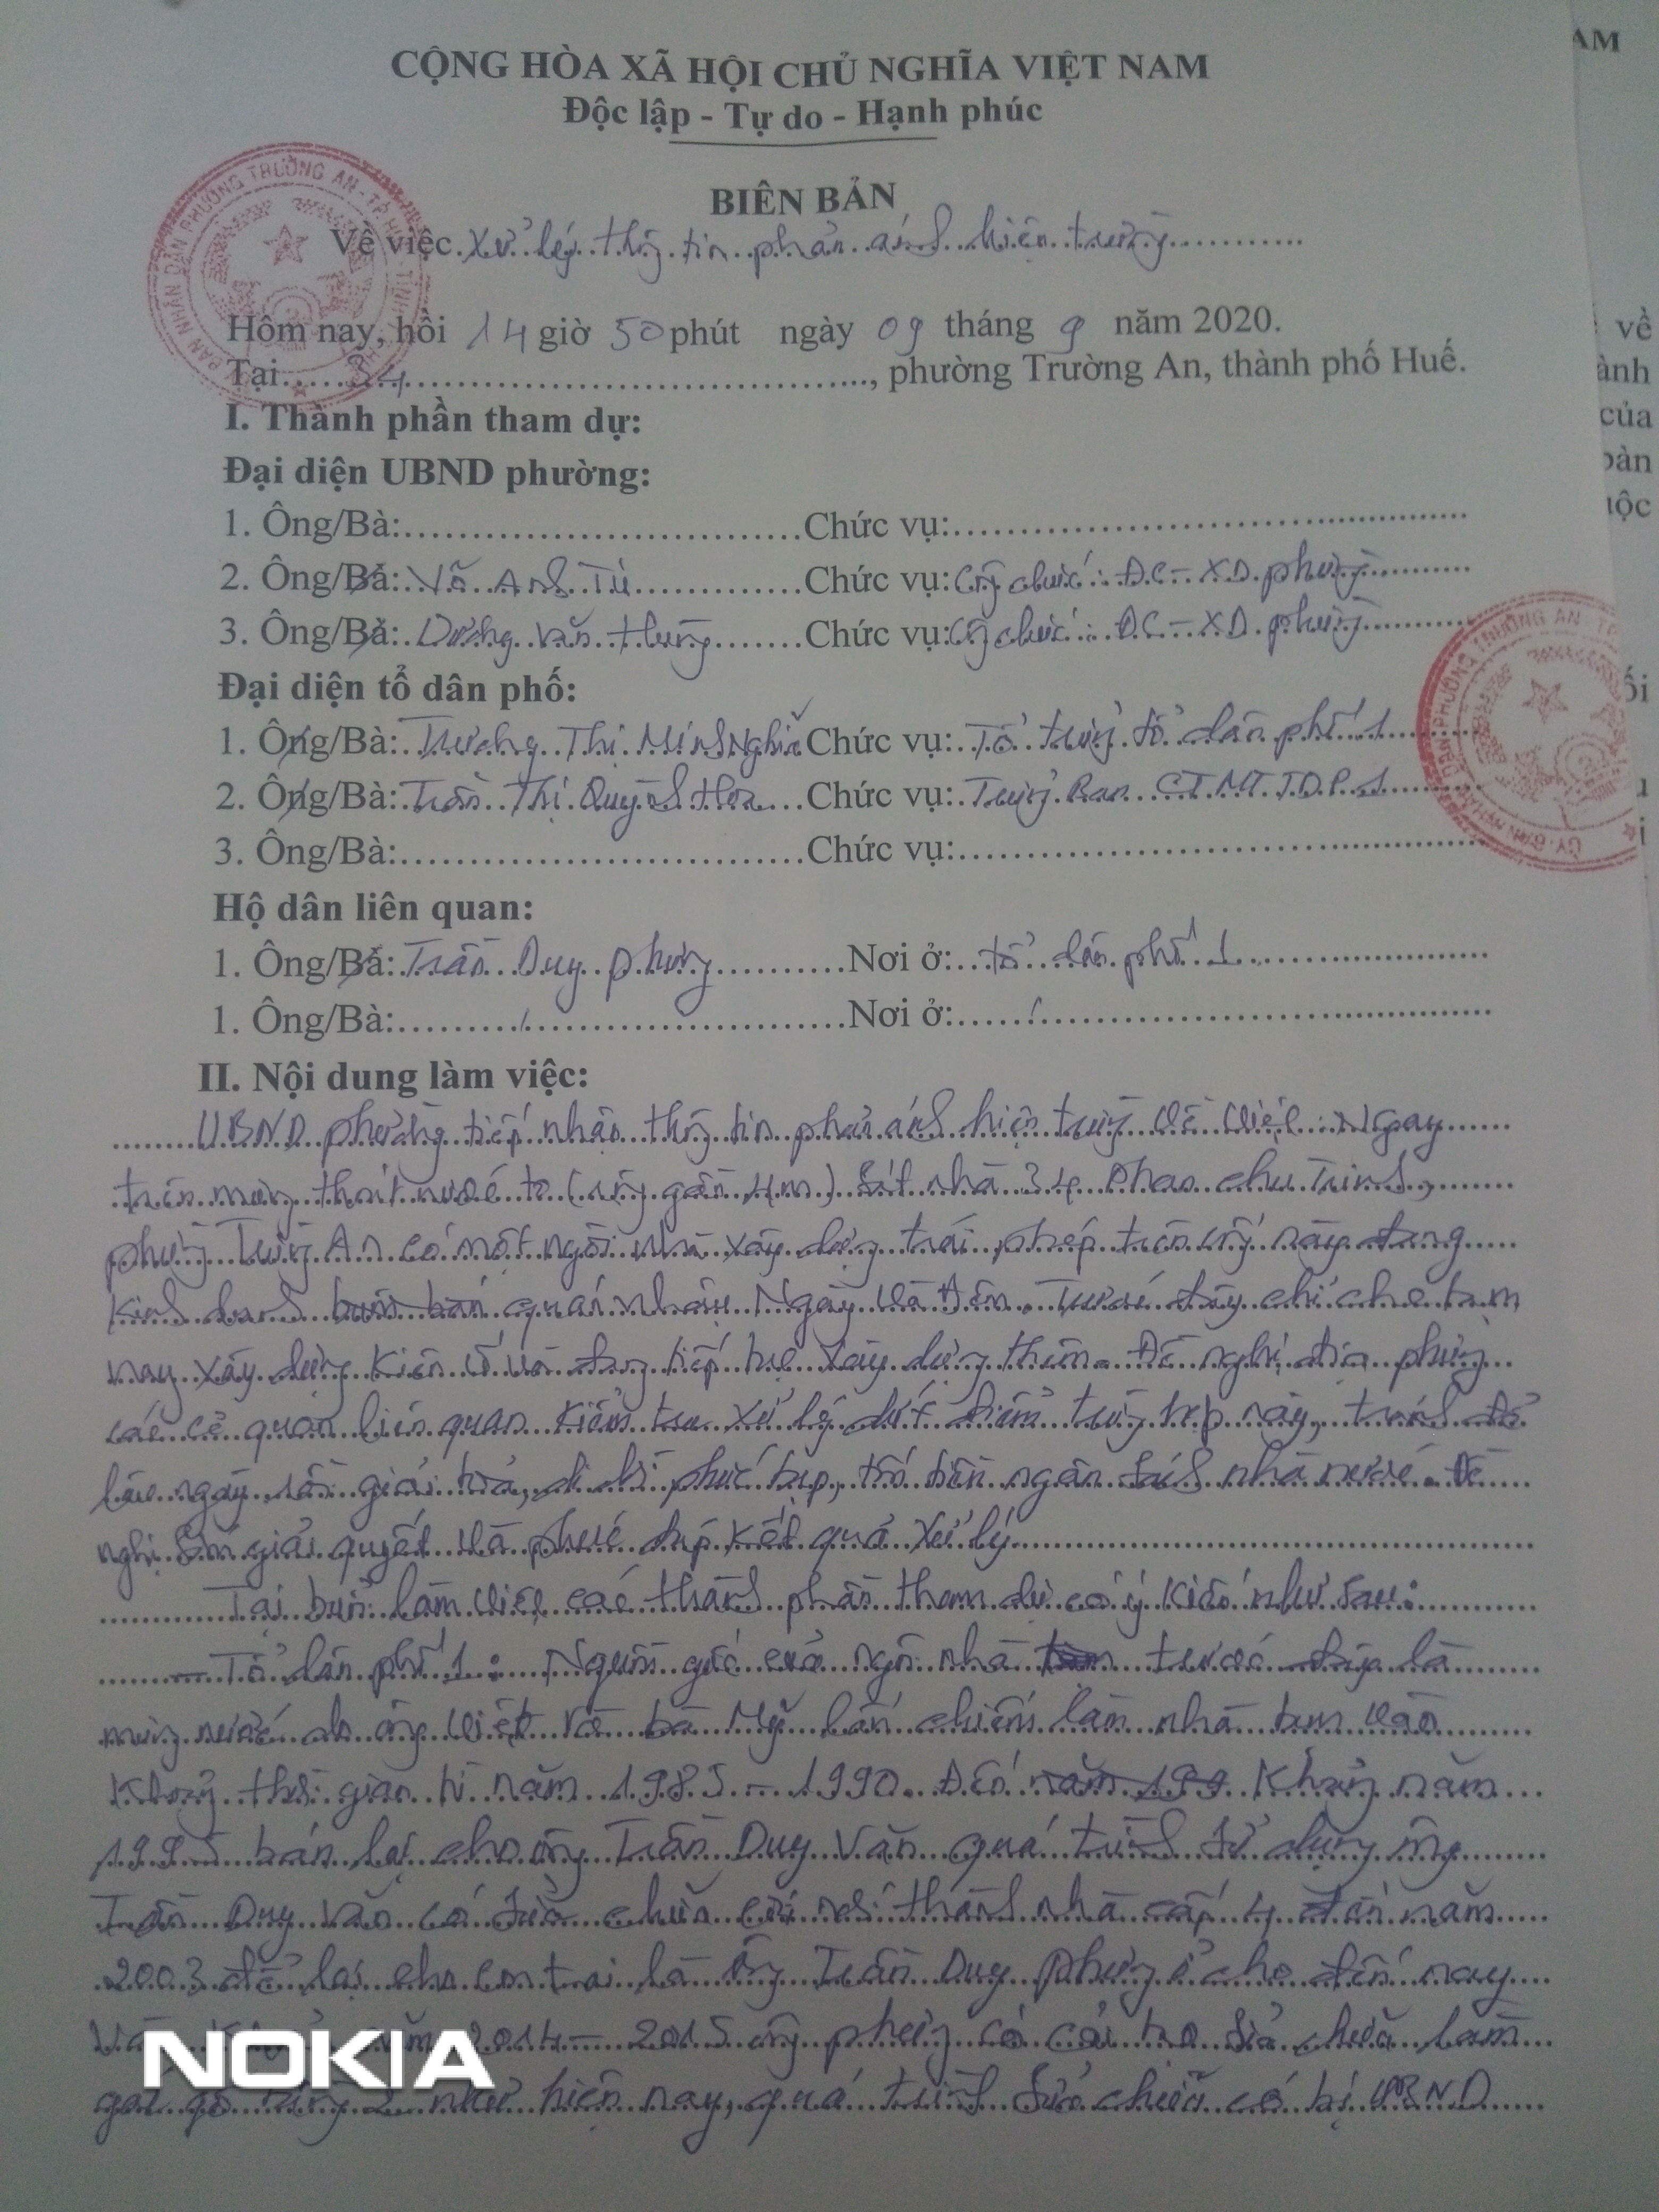 CỘNG HÒA XÃ HỘI CHỦ NGHĨA VIỆT NAM
Độc lập - Tự do - Hạnh phúc
BIÊN BẢN
Về việc xử lý thông tin phản ánh hiện trường
Hôm nay, hồi 14 giờ 50 phút ngày 09 tháng 9 năm 2020.
Tại 34, phường Trường An, thành phố Huế.
I. Thành phần tham dự:
Đại diện UBND phường:
1. Ông/Bà: Chức vụ:
2. Ông/Bà: Võ Anh Tú Chức vụ: Công chức ĐC-XD phường
3. Ông/Bà: Dương Văn Chức vụ: Công chức ĐC-XD phường
Đại diện tổ dân phố:
1. Ông/Bà: Trương Thị Minh Nghĩa Chức vụ: Tổ trưởng tổ dân phố 1
2. Ông/Bà: Trần Thị Quỳnh Hoa Chức vụ: Trưởng Ban CTMT TDP 1
3. Ông/Bà: Chức vụ:
Hộ dân liên quan:
1. Ông/Bà: Trần Duy Phương Nơi ở: tổ dân phố 1
1. Ông/Bà: / Nơi ở: /
II. Nội dung làm việc:
UBND phường tiếp nhận thông tin phản ánh hiện trường về việc: Ngay
trên mương thoát nước to (rộng gần 4m) sát nhà 34 Phan Chu Trinh,
phường Trường An có một ngôi nhà xây dựng trái phép trên cống này đang
kinh doanh buôn bán quán nhậu Ngày và Đêm. Trước đây chỉ che tạm
nay xây dựng kiên cố và đang tiếp tục xây dựng thêm. Đề nghị địa phương
các cơ quan liên quan kiểm tra xử lý dứt điểm trường hợp này, tránh để
lâu ngày rồi giải tỏa, di dời phức tạp, tốn tiền ngân sách nhà nước. Đề
nghị sớm giải quyết và phúc đáp kết quả xử lý
Tại buổi làm việc các thành phần tham dự có ý kiến như sau:
- Tổ dân phố 1: Nguồn gốc của ngôi nhà trước đây là
mương nước do ông Việt và bà Mỹ lấn chiếm làm nhà tạm vào
khoảng thời gian từ năm 1985 - 1990. Đến năm 199 khoảng năm
1995 bán lại cho ông Trần Duy Văn quá trình sử dụng ông
Trần Duy Văn có sửa chữa cơi nới thành nhà cấp 4 đến năm
2003 để lại cho con trai là ông Trần Duy Phương ở cho đến nay
năm 2014 - 2015 ông Phương có cải tạo sửa chữa làm
gác gỗ tầng 2 như hiện nay, quá trình sửa chữa có bị UBND
NOKIA
ỦY BAN NHÂN DÂN PHƯỜNG TRƯỜNG AN - TP
AM
về
ành
của
bàn
uộc
ối